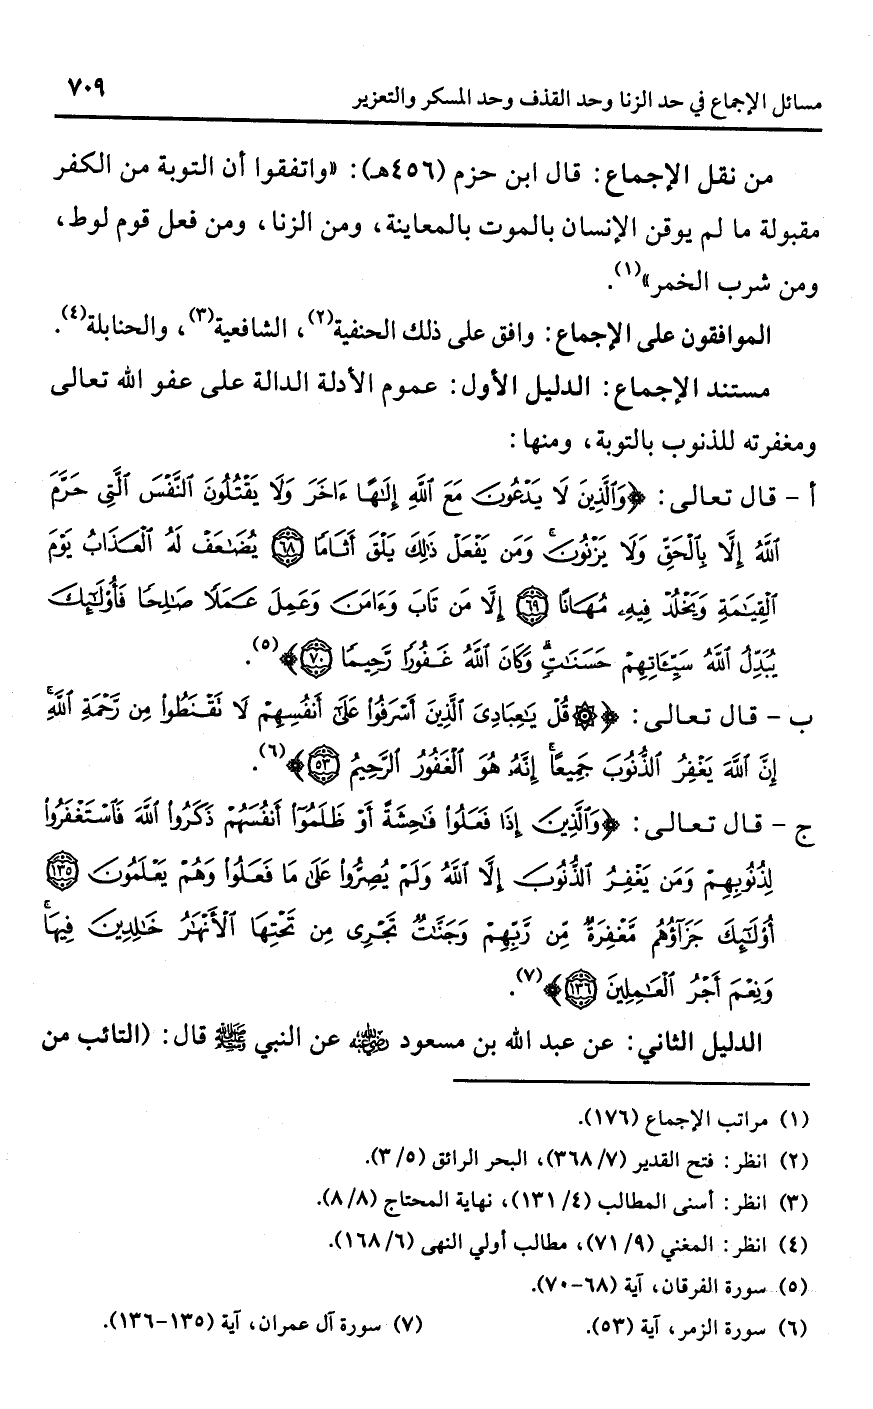 مسائل الإجماع في حد الزنا وحد القذف وحد المسكر والتعزير ٧٠٩
من نقل الإجماع: قال ابن حزم (٤٥٦هـ): «واتفقوا أن التوبة من الكفر
مقبولة ما لم يوقن الإنسان بالموت بالمعاينة، ومن الزنا، ومن فعل قوم لوط،
ومن شرب الخمر»(١).
الموافقون على الإجماع: وافق على ذلك الحنفية(٢)، الشافعية(٣)، والحنابلة(٤).
مستند الإجماع: الدليل الأول: عموم الأدلة الدالة على عفو الله تعالى
ومغفرته للذنوب بالتوبة، ومنها:
أ - قال تعالى: ﴿وَٱلَّذِينَ لَا يَدْعُونَ مَعَ ٱللَّهِ إِلَٰهًا ءَاخَرَ وَلَا يَقْتُلُونَ ٱلنَّفْسَ ٱلَّتِى حَرَّمَ
ٱللَّهُ إِلَّا بِٱلْحَقِّ وَلَا يَزْنُونَ ۚ وَمَن يَفْعَلْ ذَٰلِكَ يَلْقَ أَثَامًا ٦٨ يُضَٰعَفْ لَهُ ٱلْعَذَابُ يَوْمَ
ٱلْقِيَٰمَةِ وَيَخْلُدْ فِيهِۦ مُهَانًا ٦٩ إِلَّا مَن تَابَ وَءَامَنَ وَعَمِلَ عَمَلًا صَٰلِحًا فَأُو۟لَٰٓئِكَ
يُبَدِّلُ ٱللَّهُ سَيِّـَٔاتِهِمْ حَسَنَٰتٍ ۗ وَكَانَ ٱللَّهُ غَفُورًا رَّحِيمًا ٧٠﴾(٥).
ب - قال تعالى: ﴿۞ قُلْ يَٰعِبَادِىَ ٱلَّذِينَ أَسْرَفُوا۟ عَلَىٰٓ أَنفُسِهِمْ لَا تَقْنَطُوا۟ مِن رَّحْمَةِ ٱللَّهِ ۚ
إِنَّ ٱللَّهَ يَغْفِرُ ٱلذُّنُوبَ جَمِيعًا ۚ إِنَّهُۥ هُوَ ٱلْغَفُورُ ٱلرَّحِيمُ ٥٣﴾(٦).
ج - قال تعالى: ﴿وَٱلَّذِينَ إِذَا فَعَلُوا۟ فَٰحِشَةً أَوْ ظَلَمُوٓا۟ أَنفُسَهُمْ ذَكَرُوا۟ ٱللَّهَ فَٱسْتَغْفَرُوا۟
لِذُنُوبِهِمْ وَمَن يَغْفِرُ ٱلذُّنُوبَ إِلَّا ٱللَّهُ وَلَمْ يُصِرُّوا۟ عَلَىٰ مَا فَعَلُوا۟ وَهُمْ يَعْلَمُونَ ١٣٥
أُو۟لَٰٓئِكَ جَزَآؤُهُم مَّغْفِرَةٌ مِّن رَّبِّهِمْ وَجَنَّٰتٌ تَجْرِى مِن تَحْتِهَا ٱلْأَنْهَٰرُ خَٰلِدِينَ فِيهَا ۚ
وَنِعْمَ أَجْرُ ٱلْعَٰمِلِينَ ١٣٦﴾(٧).
الدليل الثاني: عن عبد الله بن مسعود رضي الله عنه عن النبي ﷺ قال: (التائب من
(١) مراتب الإجماع (١٧٦).
(٢) انظر: فتح القدير (٧/ ٣٦٨)، البحر الرائق (٥/ ٣).
(٣) انظر: أسنى المطالب (٤/ ١٣١)، نهاية المحتاج (٨/ ٨).
(٤) انظر: المغني (٩/ ٧١)، مطالب أولي النهى (٦/ ١٦٨).
(٥) سورة الفرقان، آية (٦٨-٧٠).
(٦) سورة الزمر، آية (٥٣). (٧) سورة آل عمران، آية (١٣٥-١٣٦).